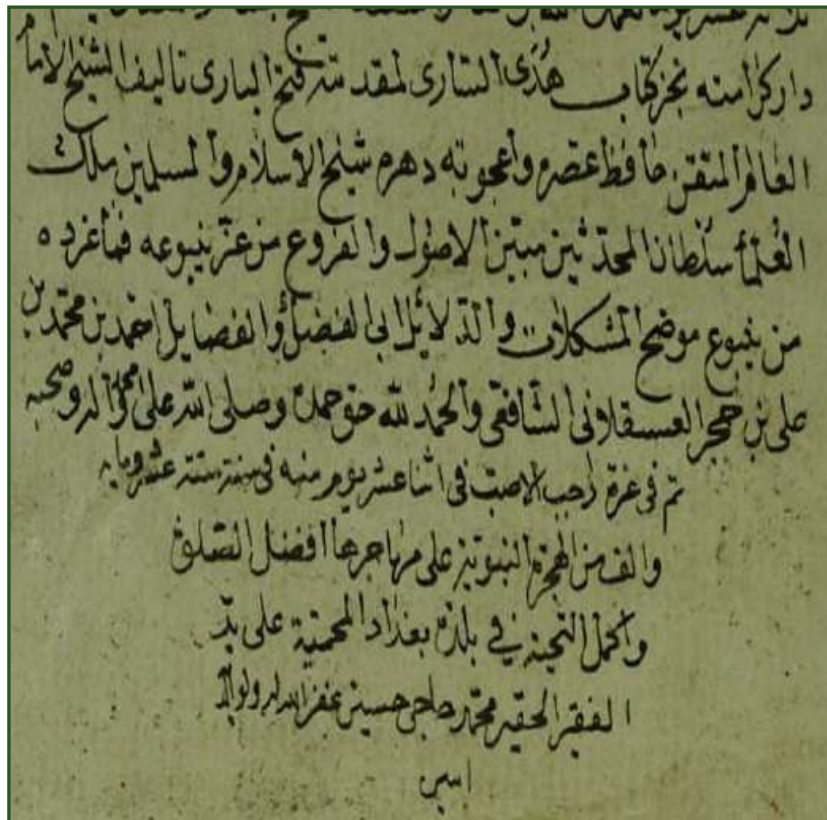 ثلاثة عشر
دار كرامته نجز كتاب هدى السارى لمقدمة فتح البارى تاليف الشيخ الامام
العالم المتقن حافظ عصره واعجوبة دهره شيخ الاسلام والمسلمين ملك
العلماء سلطان المحدثين مبين الاصول والفروع من عز ينبوعه
من ينبوع موضح المشكلات والدلائل ابى الفضل والفضايل احمد بن محمد بن
على بن حجر العسقلانى الشافعى والحمد لله حق حمده وصلى الله على محمد واله وصحبه
تم فى غرة رجب الاصب فى اثنا عشر يوم منه فى سنة ستة عشر ومايه
والف من الهجرة النبوية على مهاجرها افضل الصلوة
واكمل التحية في بلدة بغداد المحمية على يد
الفقير الحقير محمد حاجى حسين غفر الله له ولوالديه
امين